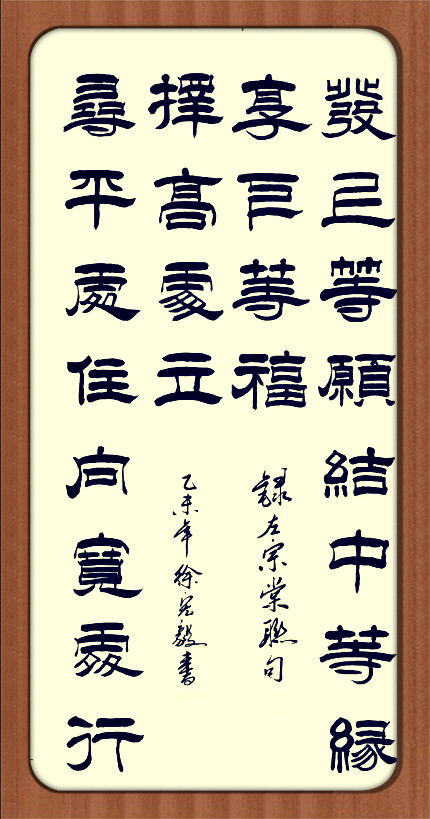 發上等願結中等緣
享下等福
錄左宗棠聯句
擇高處立
乙未年徐毅書
尋平處住向寬處行